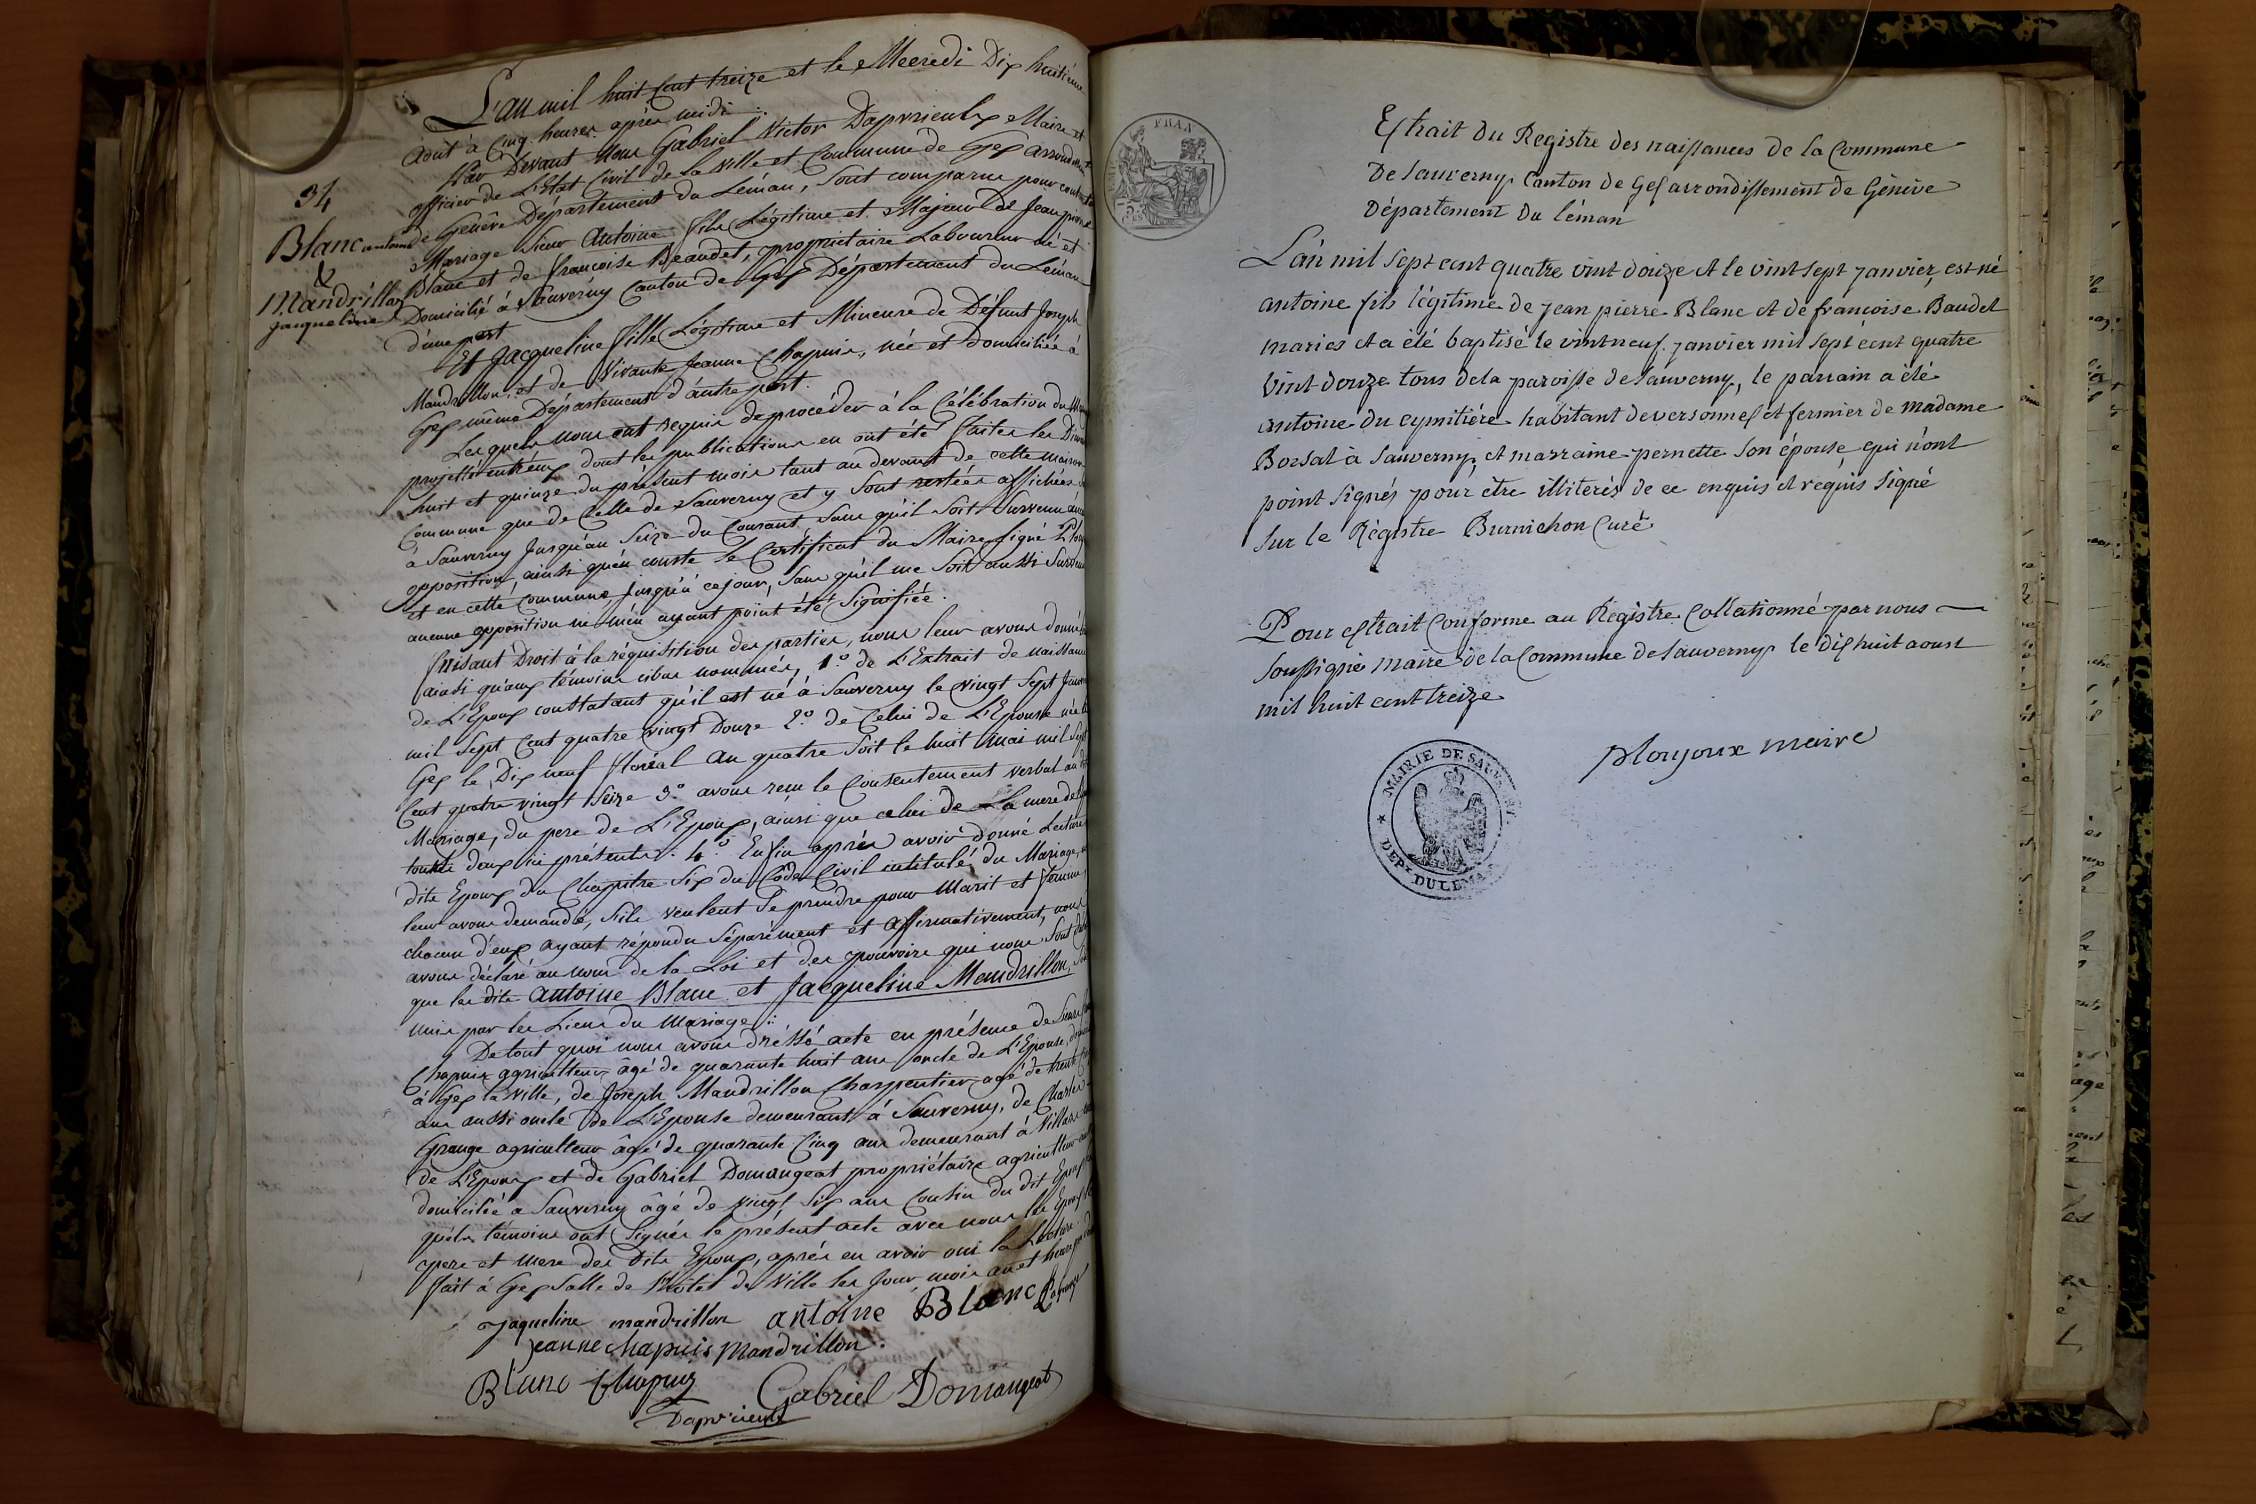 L'an mil huit Cent treize et le Mecredi Dix huitième
Aout à Cinq heures après midi
Par Devant Nous Gabriel Victor Maire et
officier de L'Etat Civil de la Ville et Commune de Gex arrondissement
34
de Genêve Département du Léman, Sont comparus pour contracter
Blanc antoine
&
Mandrillon
jacqueline
Mariage Sieur Antoine fils Légitime et Majeur de Jean pierre
Blanc et de francoise Beaudet, propriétaire Laboureur né et
Domicilié à Sauverny Canton de Gex Département du Léman
d'une part
Et Jacqueline fille Légitime et Mineure de Défunt Joseph
Mandrillon, et de Vivante Jeanne Chapuis, née et Domiciliée à
Gex même Département d'autre part.
Lesquels nous ont requis de procéder à la Célébration du
projetté entr'eux dont les publications en ont été faites les
huit et quinze du présent mois tant au devant de cette maison
Commune que de Celle de Sauverny et y Sont restées affichées
à Sauverny Jusqu'au Seize du Courant, Sans qu'il Soit Survenu
opposition, ainsi qu'en conste le Certificat du Maire Signé
et en cette Commune, jusqu'à ce jour, Sans qu'il me Soit aussi
aucune opposition ne m'en ayant point été Signifiée.
faisant Droit à la réquisition des parties, nous leur avons donné
ainsi qu'aux témoins cibas nommés, 1.° de L'Extrait de naissance
de L'Epoux constatant qu'il est né à Sauverny le vingt Sept
mil Sept Cent quatre vingt Douze 2.° de Celui de L'Epouse née
Gex le Dix neuf floréal An quatre Soit le huit Mai mil
Cent quatre vingt Seize 3.° avons recu le Consentement verbal au
Mariage, du pere de L'Epoux, ainsi que celui de La mere de
toutes deux ici présents. 4.° Enfin après avoir donné Lecture
dits Epoux du Chapitre Six du Code Civil intitulé du Mariage,
leur avons demandé, S'ils veulent Se prendre pour Marit et femme,
chacun d'eux ayant répondu Séparément et affirmativement, nous
avons déclaré au nom de la Loi et des pouvoirs qui nous Sont
que les dits Antoine Blanc et Jacqueline Mandrillon,
unis par les Liens du Mariage
De tout quoi nous avons dréssé acte en présence de Sieurs
Chapuis agriculteur âgé de quarante huit ans oncle de L'Epouse,
à Gex la Ville, de Joseph Mandrillon Charpentier agé de trente
ans aussi oncle de L'Epouse demeurant à Sauverny, de Charles
Grange agriculteur âgé de quarante Cinq ans demeurant à
de L'Epoux et de Gabriel Domangeat propriétaire agriculteur
domicilié à Sauverny âgé de vingt Six ans Cousin du dit Epoux
quels témoins ont Signés le présent acte avec nous les Epoux
pere et mere des Dits Epoux, après en avoir oui la Lecture
fait à Gex Salle de L'hotel de Ville les Jour, mois an et heure
Jaqueline mandrillon antoine Blanc
jeanne chapuis mandrillon.
Blanc Chapuis Gabriel Domangeat
FRAN
Extrait du Registre des naissances de la Commune
De Sauverny Canton de Gex arrondissement de Génève
Département Du léman
L'an mil sept cent quatre vint douze et le vint sept janvier, est né
antoine fils légitime de jean pierre Blanc et de françoise Baudet
mariés et a été baptisé le vint neuf janvier mil sept cent quatre
vint douze tous de la paroisse de Sauverny, le parrain a été
antoine du cymitiére habitant de versonnex et fermier de madame
Borsat à Sauverny, et marraine pernette Son épouse qui n'ont
point Signés pour être illiterés de ce enquis et requis Signé
Sur le Régistre Burnichon Curé
Pour extrait conforme au Registre Collationné par nous
Soussigné maire de la Commune de Sauverny le dix huit aoust
mil huit cent treize
MAIRIE DE SAUVERNY
DEPT DU LEMAN